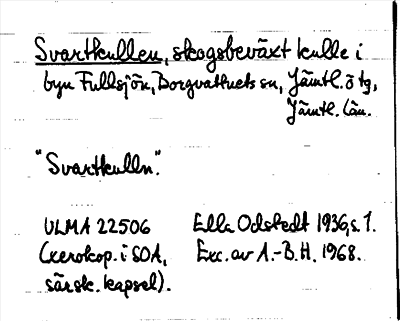 Svartkullen, skogsbeväxt kulle i
byn Fullsjön, Borgvattnets sn, Jämtl. ö tg,
Jämtl. län.
"Svartkulln".
ULMA 22506 Ella Odstedt 1936, s. 1.
(xerokop. i SOA, Exc. av A.-B.H. 1968.
särsk. kapsel).